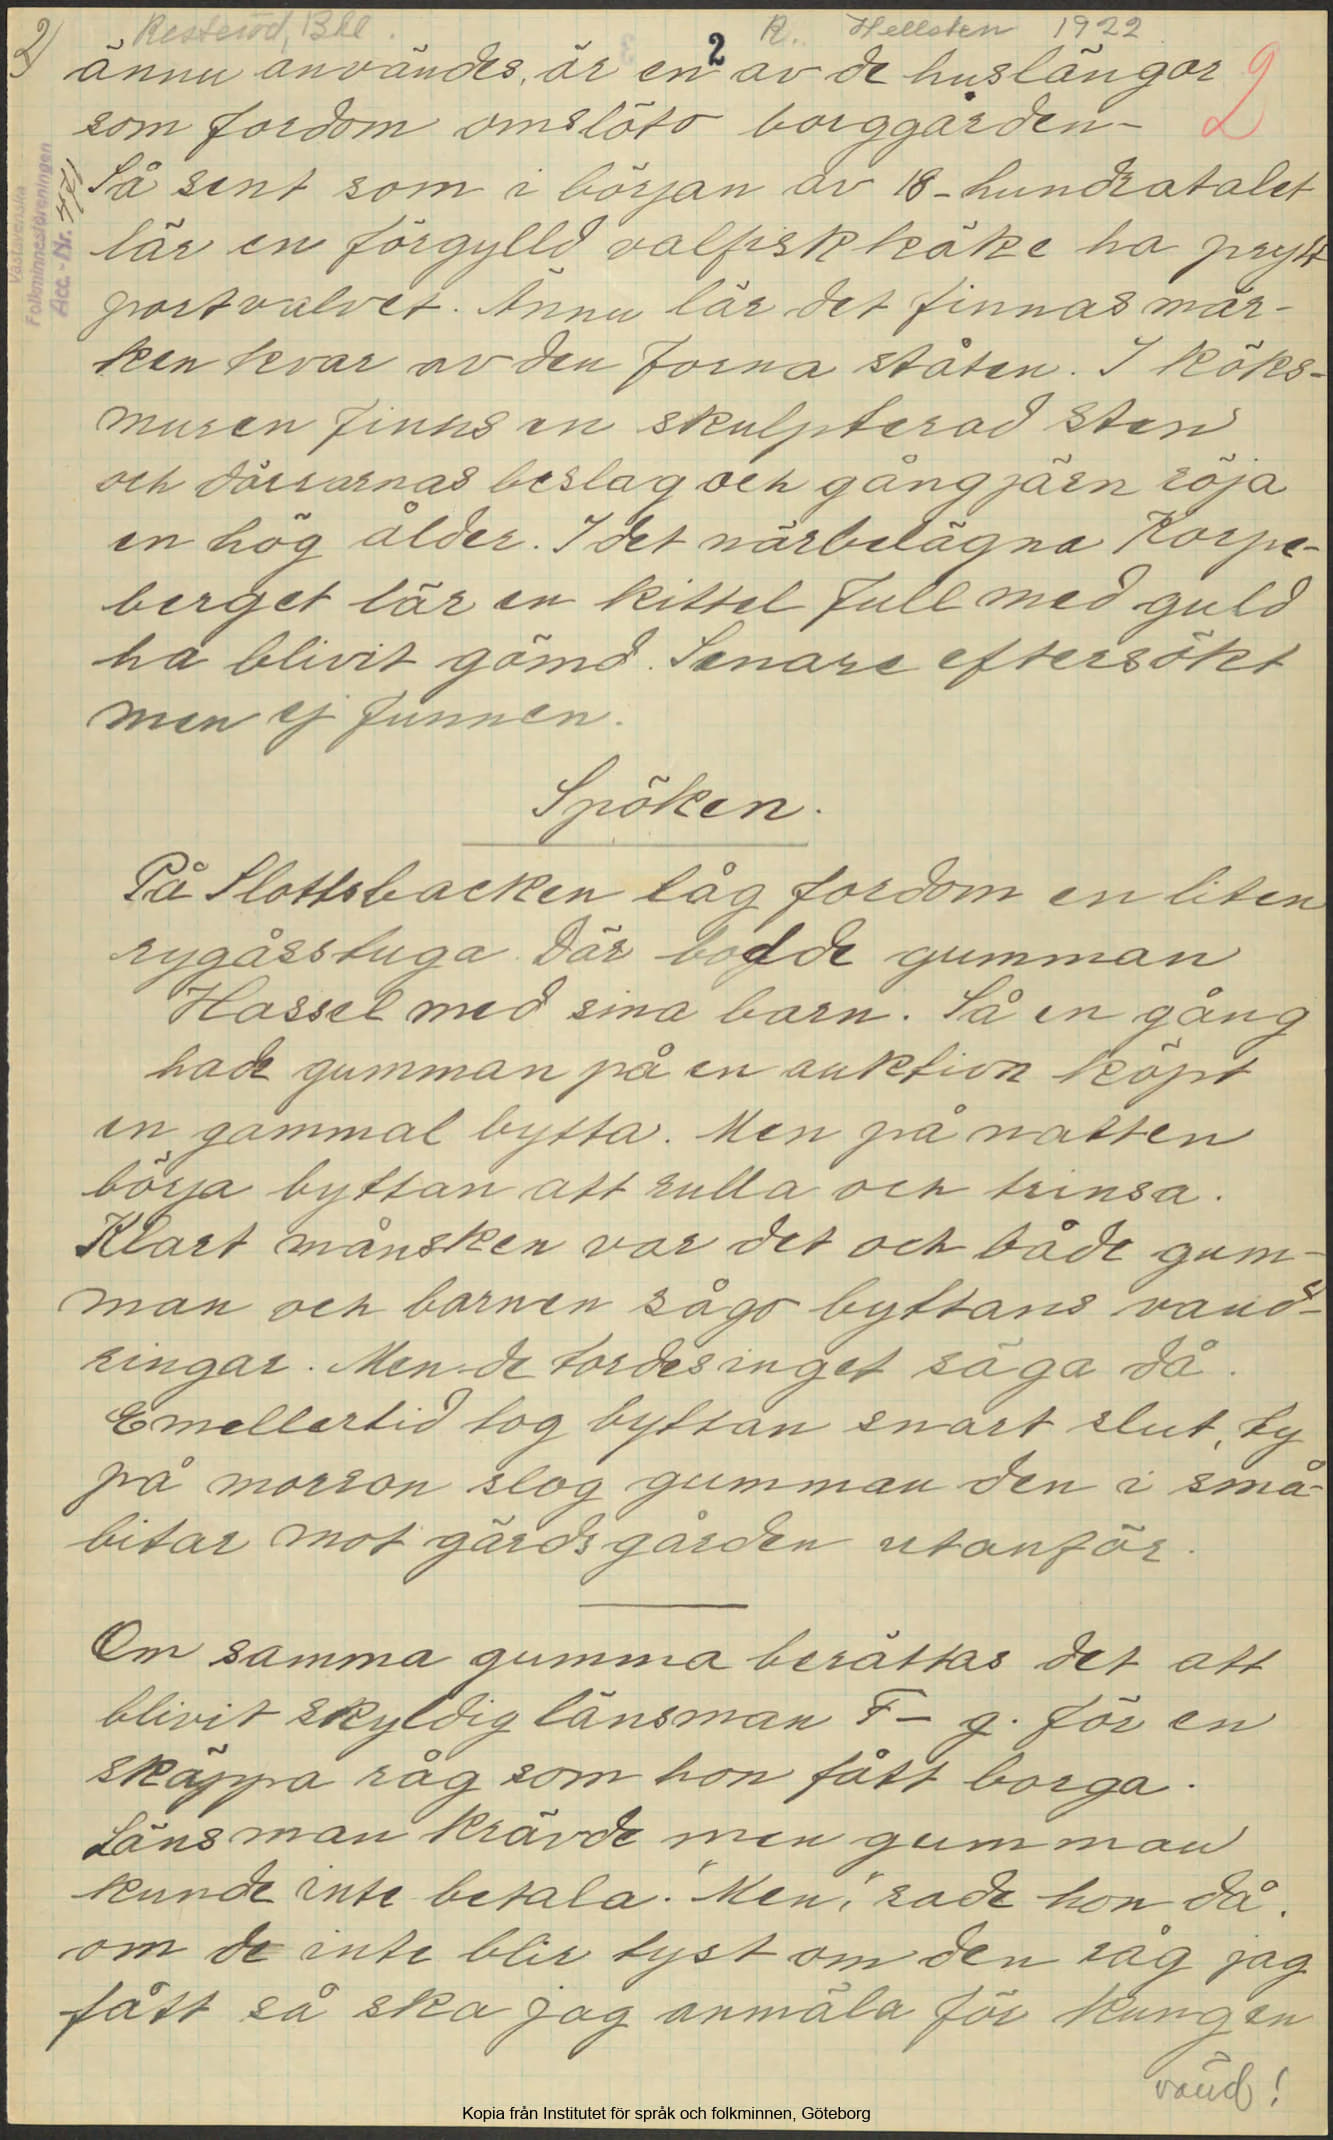 2) Resteröd, Bhl. 2 R. Hellsten 1922
ännu användes, är en av de huslängor 2
som fordom omslöto borggården –
Så sent som i början av 18-hundratalet
lär en förgylld valfiskkäke ha prytt
portvalvet. Ännu lär det finnas mär-
ken kvar av den forna ståten. I köks-
muren finns en skulpterad sten
och dörrarnas beslag och gångjärn röja
en hög ålder. I det närbelägna Korpe-
berget lär en kittel full med guld
ha blivit gömd. Senare eftersökt
men ej funnen.
Spöken.
På Slottsbacken låg fordom en liten
rygåsstuga där bodde gumman
Hassel med sina barn. Så en gång
hade gumman på en auktion köpt
en gammal bytta. Men på natten
börja byttan att rulla och trinsa.
Klart månsken var det och både gum-
man och barnen sågo byttans vand-
ringar. Men de tordes inget säga då.
Emellertid tog byttan snart slut, ty
på morron slog gumman den i små-
bitar mot gärdsgården utanför.
Om samma gumma berättas det att
blivit skyldig länsman F – g. för en
skäppa råg som hon fått borga.
Länsman krävde men gumman
kunde inte betala. "Men", sade hon då,
om de inte blir tyst om den råg jag
fått så ska jag anmäla för kungen
vänd!
Västsvenska
Folkminnesföreningen
Acc.-Nr.
Kopia från Institutet för språk och folkminnen, Göteborg